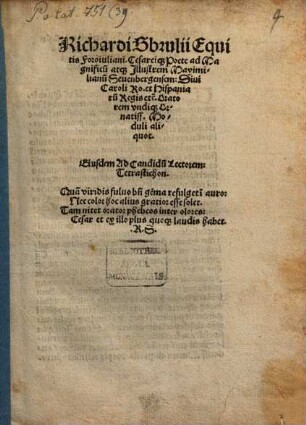 Po. lat. 751 (39
9
Richardi Sbrulii Equi
tis Foroiuliani. Cesareiq; Poete ad Ma
gnificū atq; Illustrem Maximi-
lianū Seuenbergensem: Diui
Caroli Ro. et Hispania
rū Regis etc̄. Orato
rem vndiq; Or-
natiss. Mo-
duli ali-
quot.
Eiusdem Ad Candidū Lectorem:
Tetrastichon.
Quā viridis fuluo bn̄ gēma refulget in auro:
Nec color hoc alius gratior esse solet.
Tam nitet orator phebeos inter olores:
Cesar et ex illo plus quoq; laudis habet.
.R.S.
BIBLIOTHECA
REGIA
MONACENSIS